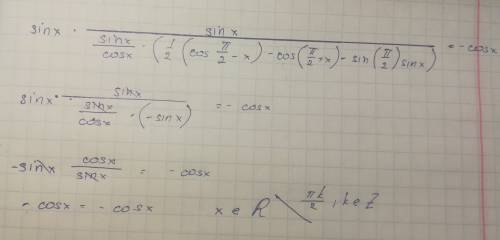 sin x · sin x / (sin x / cos x · (1/2 (cos π/2 - x) - cos(π/2 + x) - sin(π/2) sin x)) = - cos x
sin x · sin x / (sin x / cos x · (- sin x)) = - cos x
- sin x cos x / sin x = - cos x
- cos x = - cos x x ∈ R \ πk/2, k ∈ Z